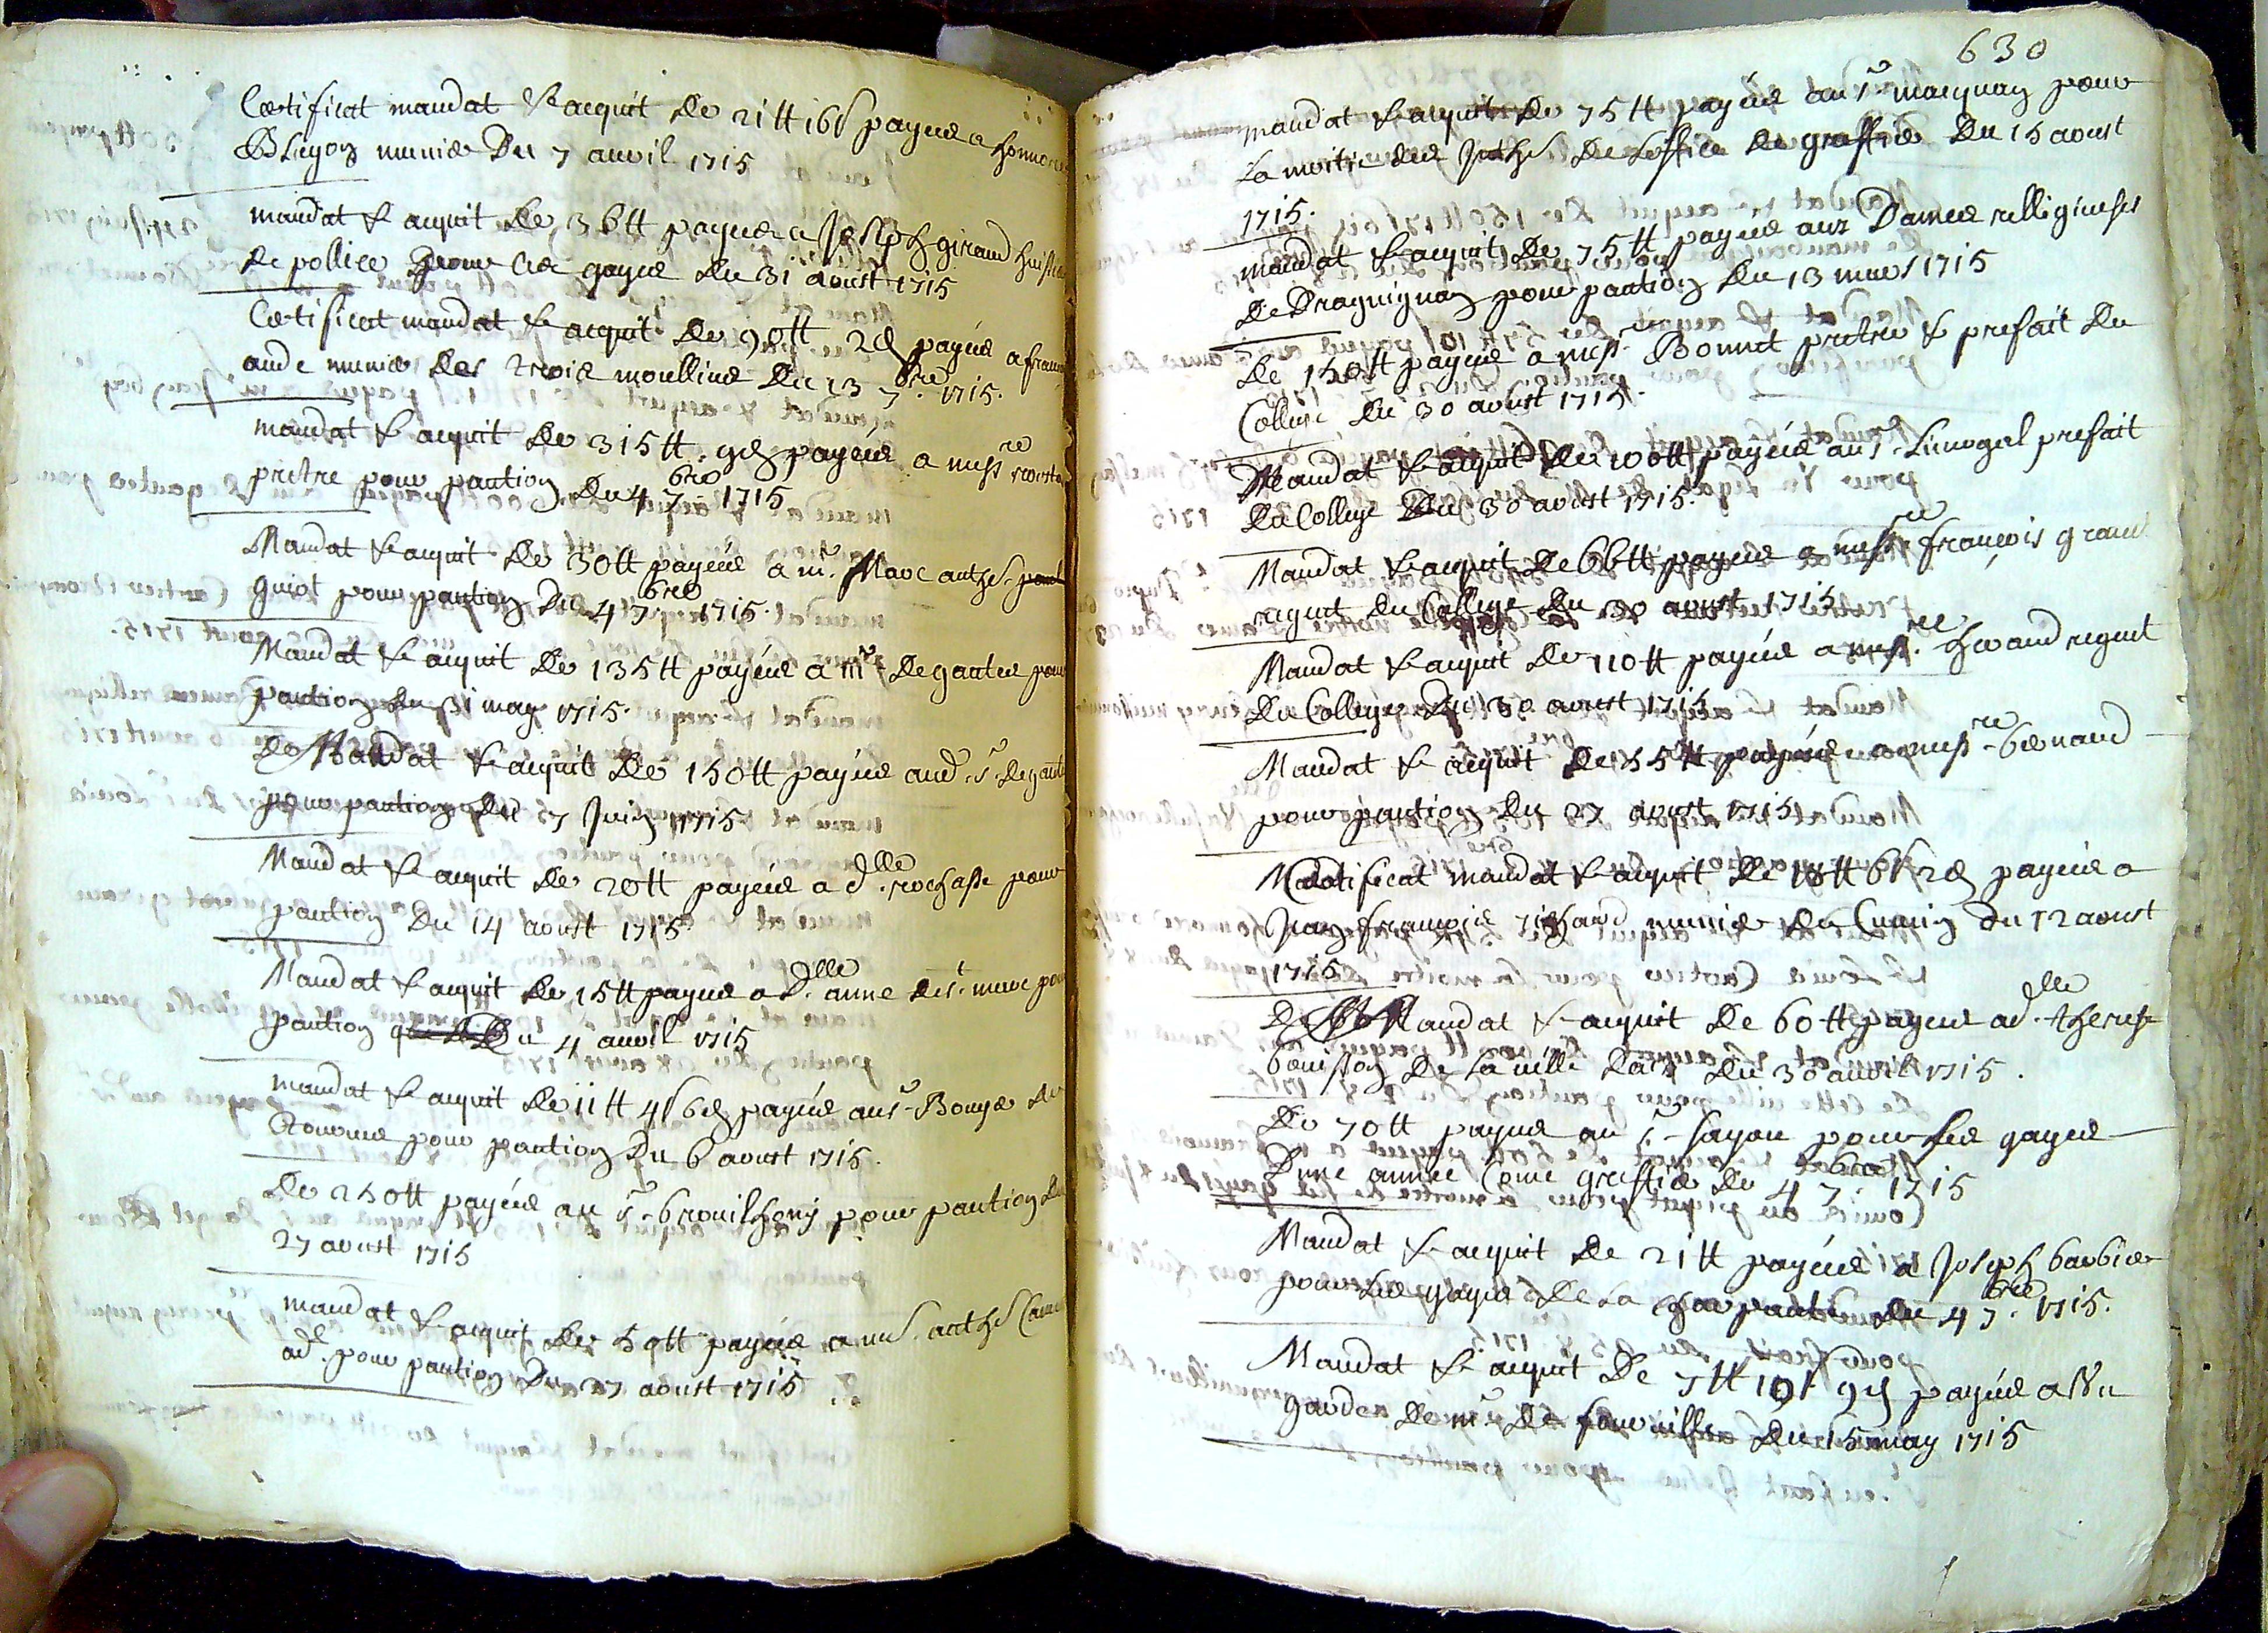 Certificat mandat & acquit de 21 tt 16 s payees a honnore
Blugon munier du 7 avril 1715
mandat & acquit de 36 tt payees a Joseph giraud huissier
de pollice pour ses gages du 31 aoust 1715
Certificat mandat & acquit de 90 tt 2 d payees a
aude munier des trois moullins du 23 7.bre 1715.
mandat & acquit de 315 tt. 9 d payées a mess.re
pretre pour pantion du 4 7.bre 1715
Mandat & acquit de 50 tt payées a m.r Marc anth.e
guiot pour pantion du 4 7.bre 1715.
Mandat & acquit de 135 tt payées a m.r de gantes pour
pantion du 31 may 1715.
De Mandat & acquit de 150 tt payées aud. s.r de gante
pour pantion du 7 Juin 1715
Mandat & acquit de 20 tt payées a d.lle rochasse pour
pantion du 14 aoust 1715
Mandat & acquit de 15 tt payees a d.lle anne de s.t marc pour
pantion du 4 avril 1715
mandat & acquit de 11 tt 4 s 6 d payées au s.r Bouge de
pour pantion du 6 aoust 1715.
De 250 tt payées au s.r brouilhony pour pantion du
27 aoust 1715
mandat & acquit de 50 tt payées a me. anth.e
ad.t pour pantion du 27 aoust 1715
630
mandat & acquit de 75 tt payées au s.r maquan pour
la moitie des de loffice de greffier du 15 aoust
1715.
mandat & acquit de 75 tt payees aux Dames relligieuses
de Draguignan pour pantion du 13 mars 1715
De 150 tt payees a mess. Bonnet pretre & prefait du
College du 30 aoust 1715.
Mandat & acquit de 100 tt payées au s.r Limogal prefait
du College du 30 aoust 1715.
Mandat & acquit de 66 tt payées a mess.re francois
regent du College du 30 aoust 1715
Mandat & acquit de 110 tt payées a mess.re heraud regent
du College du 30 aoust 1715
Mandat & acquit de 55 tt payées a mess.re bernard
pour pantion du 27 aoust 1715
Certificat mandat & acquit de 18 tt 6 s 2 d payées a
Jean francois richard munier du Cumin du 12 aoust
1715
De Mandat & acquit de 60 tt payees a d.lle therese
bouisson de la ville daix du 30 avril 1715.
De 70 tt payees au s.r sayou pour ses gages
Dune année come greffier du 4 7.bre 1715
Mandat & acquit de 21 tt payées a Joseph barbier
pour ses gages de la charpante du 4 7.bre 1715.
Mandat & acquit de 7 tt 10 s 9 d payées a un
garde de m.r de du 15 may 1715